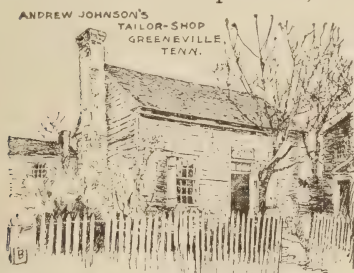 ANDREW JOHNSON'S
TAILOR-SHOP
GREENEVILLE,
TENN.
B